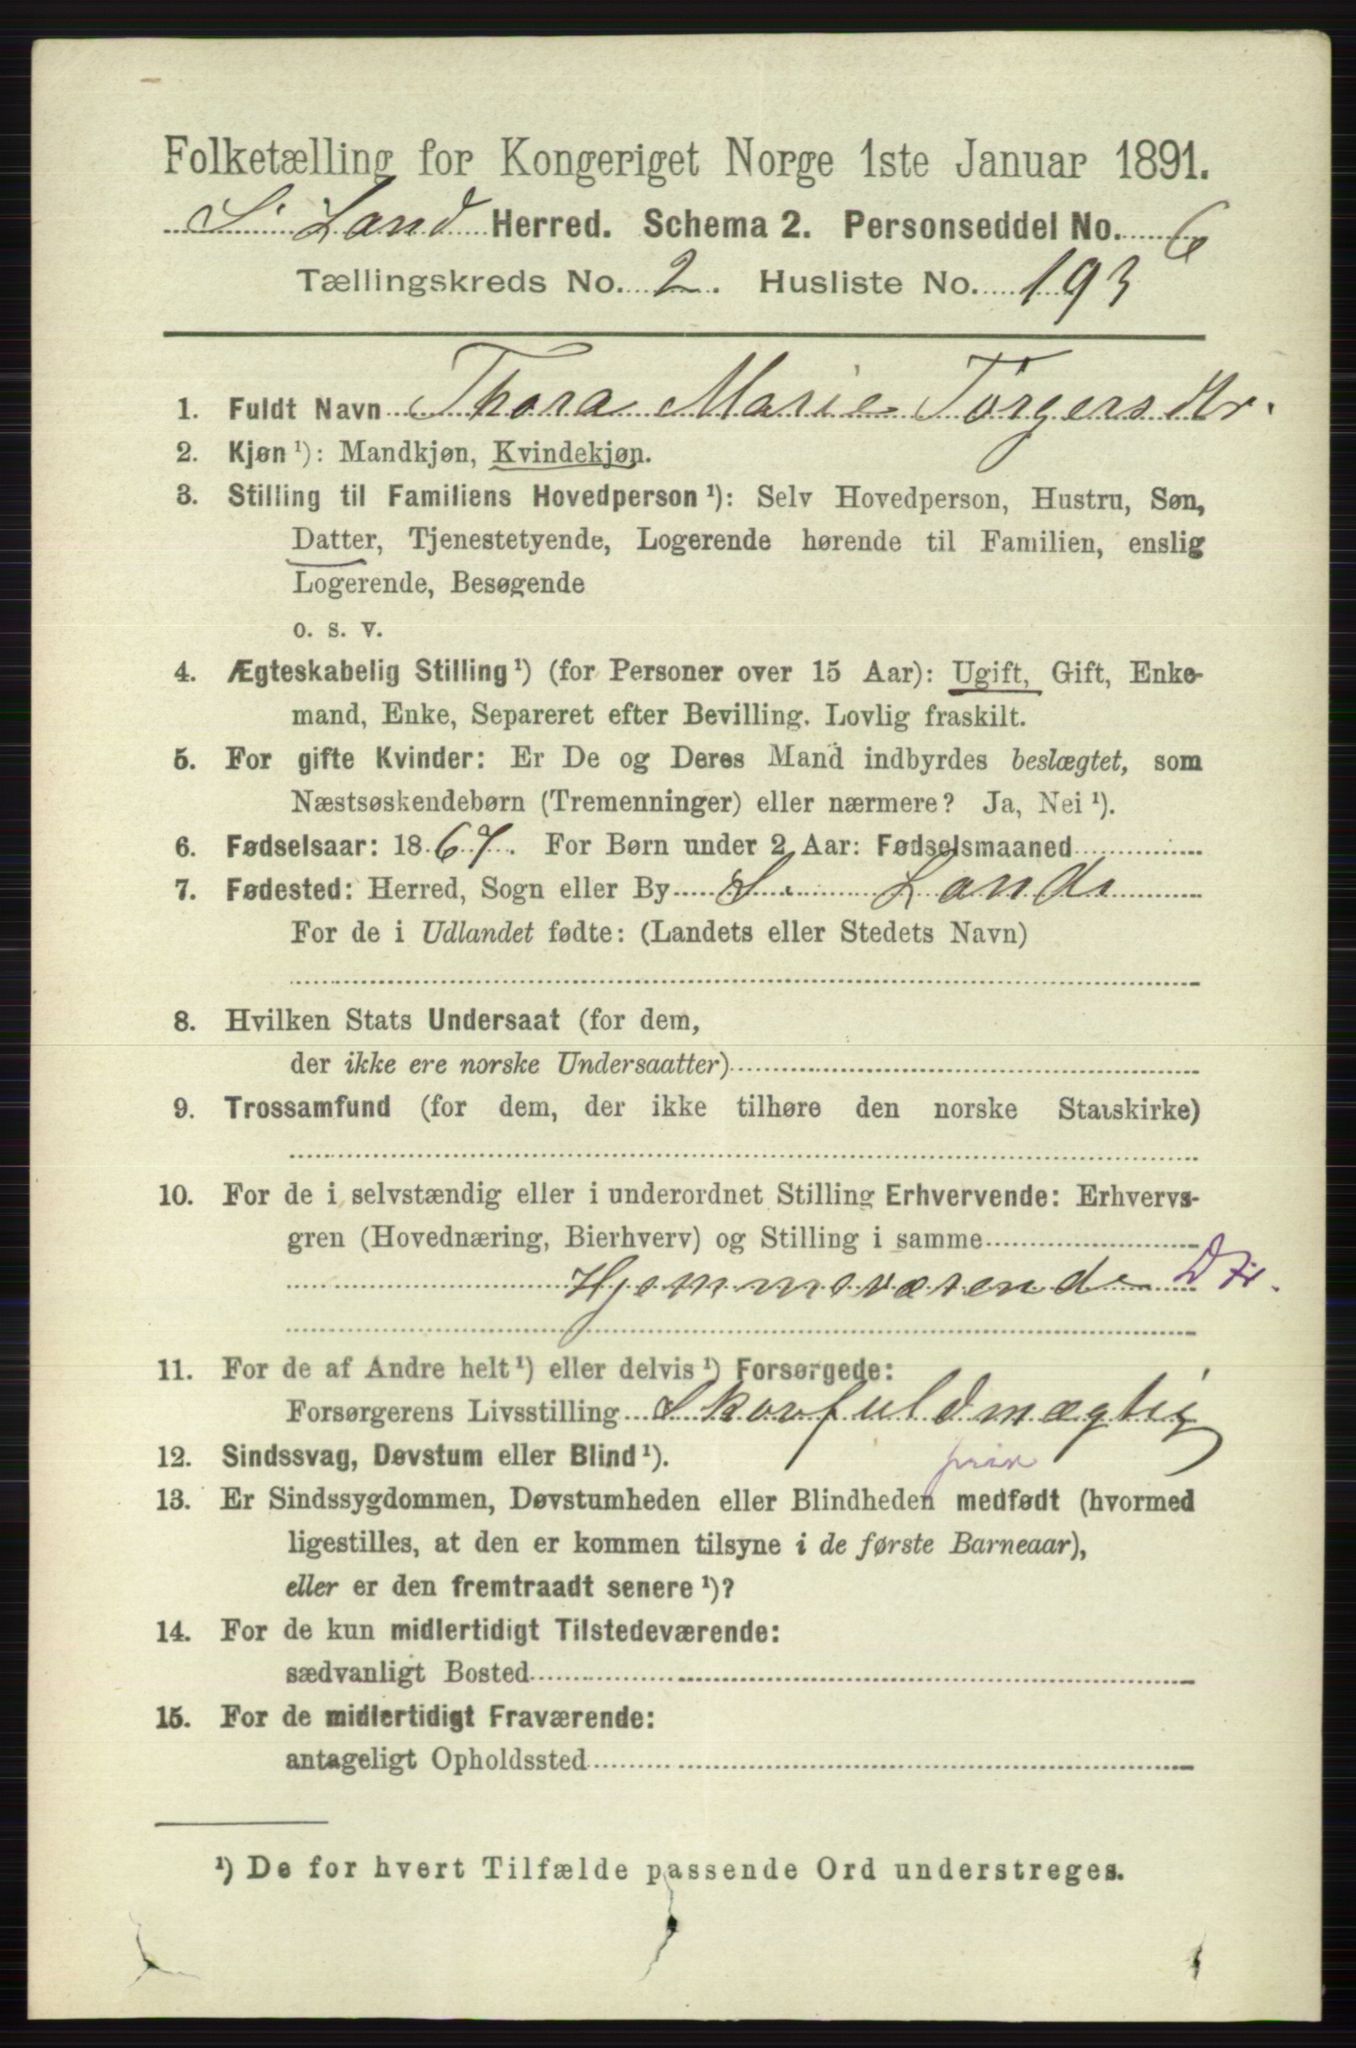 Folketælling for Kongeriget Norge 1ste Januar 1891.
S. Land Herred. Schema 2. Personseddel No. 6
Tællingskreds No. 2. Husliste No. 193
1. Fuldt Navn Thora Marie Torgersdtr.
2. Kjøn ¹): Mandkjøn, Kvindekjøn.
3. Stilling til Familiens Hovedperson ¹): Selv Hovedperson, Hustru, Søn,
Datter, Tjenestetyende, Logerende hørende til Familien, enslig
Logerende, Besøgende
o. s. v.
4. Ægteskabelig Stilling ¹) (for Personer over 15 Aar): Ugift, Gift, Enke-
mand, Enke, Separeret efter Bevilling. Lovlig fraskilt.
5. For gifte Kvinder: Er De og Deres Mand indbyrdes beslægtet, som
Næstsøskendebørn (Tremenninger) eller nærmere? Ja, Nei ¹).
6. Fødselsaar: 1867. For Børn under 2 Aar: Fødselsmaaned
7. Fødested: Herred, Sogn eller By S. Land
For de i Udlandet fødte: (Landets eller Stedets Navn)
8. Hvilken Stats Undersaat (for dem,
der ikke ere norske Undersaatter)
9. Trossamfund (for dem, der ikke tilhøre den norske Statskirke)
10. For de i selvstændig eller i underordnet Stilling Erhvervende: Erhvervs-
gren (Hovednæring, Bierhverv) og Stilling i samme
Hjemmeværende Dtr.
11. For de af Andre helt ¹) eller delvis ¹) Forsørgede:
Forsørgerens Livsstilling Skovfuldmægtig
12. Sindssvag, Døvstum eller Blind ¹).
13. Er Sindssygdommen, Døvstumheden eller Blindheden medfødt (hvormed
ligestilles, at den er kommen tilsyne i de første Barneaar),
eller er den fremtraadt senere ¹)?
14. For de kun midlertidigt Tilstedeværende:
sædvanligt Bosted
15. For de midlertidigt Fraværende:
antageligt Opholdssted
¹) De for hvert Tilfælde passende Ord understreges.